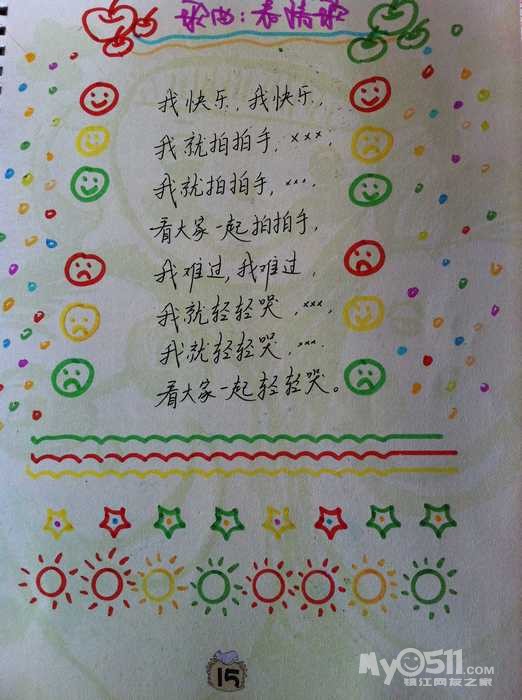 歌曲:表情歌
我快乐,我快乐,
我就拍拍手,×××,
我就拍拍手,×××.
看大家一起拍拍手,
我难过,我难过,
我就轻轻哭,×××,
我就轻轻哭,×××.
看大家一起轻轻哭。
15
My0511.com
镇江网友之家